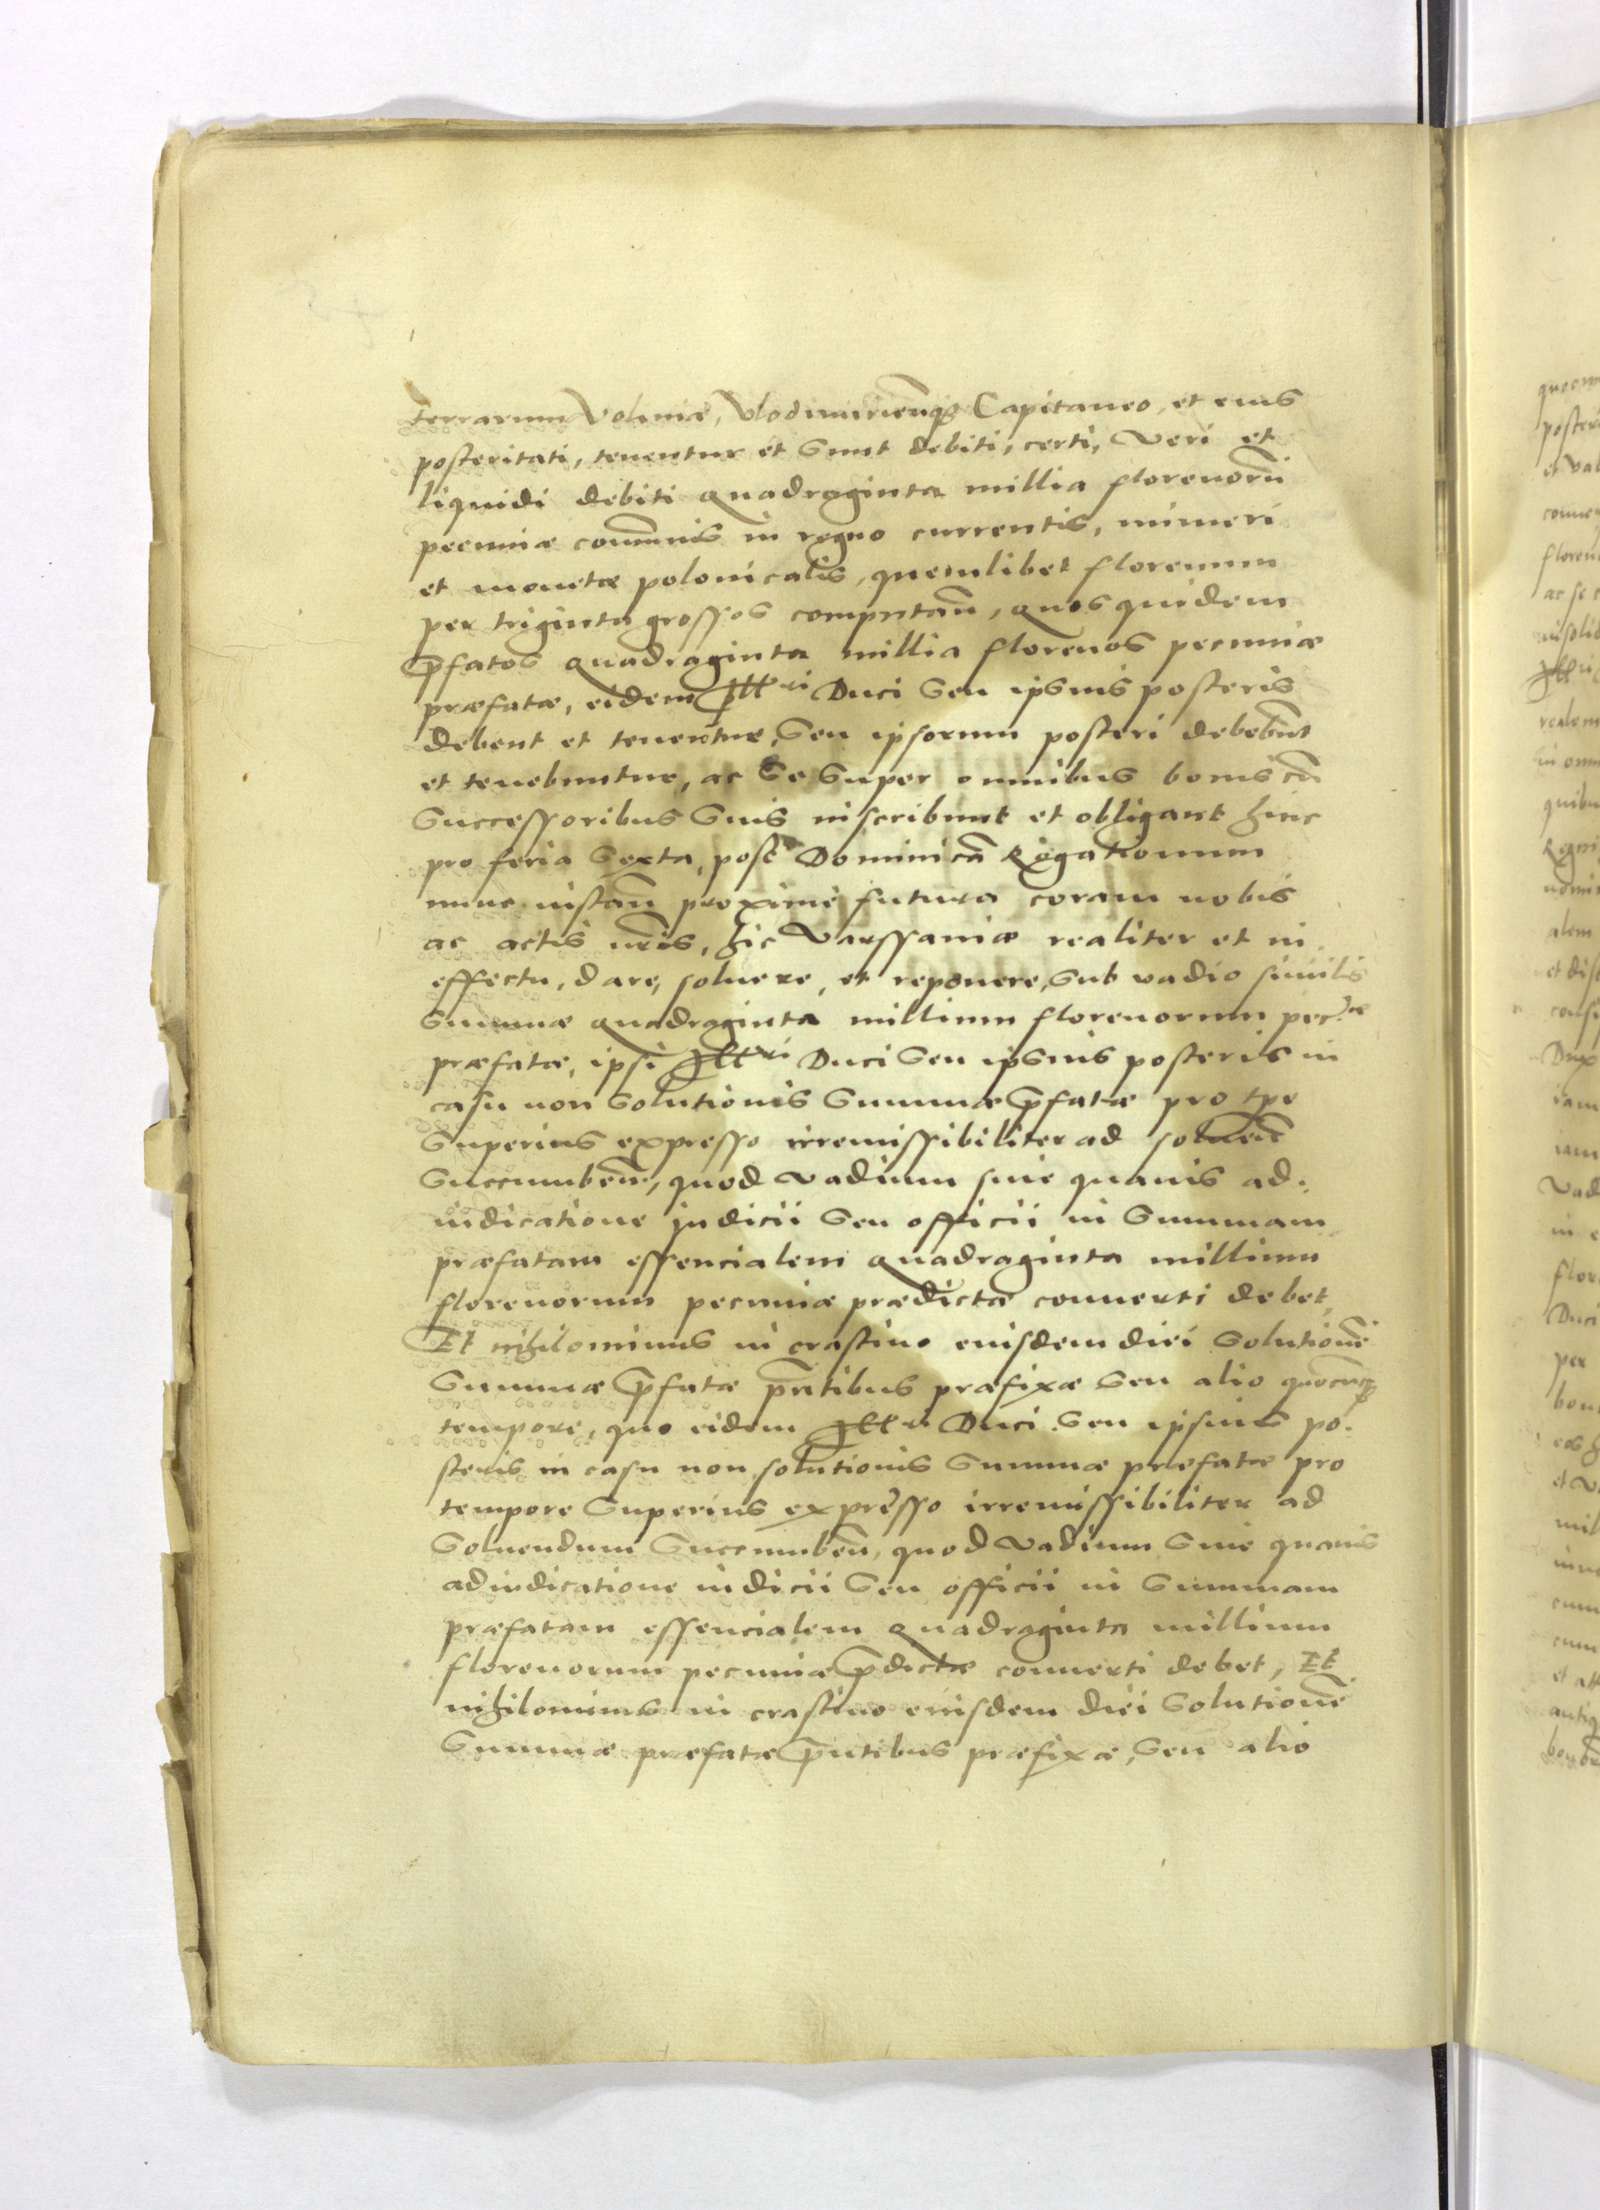 terrarum Voliniæ, Vlodimirienq̃ Capitaneo, et eius
posteritati, tenentur et sunt debiti, certi, veri et
liquidi debiti quadraginta millia florenorũ
pecuniæ com̃unis in regno currentis, numeri
et monetæ polonicalis, quemlibet florenum
per triginta grossos computań, quos quidem
p̃fatos quadraginta millia florenos pecuniæ
præfatæ, eidem Ill^ri Duci seu ipsius posteris
debent et tenentur, seu ipsorum posteri debebũt
et tenebuntur, ac se super omnibus bonis cũ
successoribus suis inscribunt et obligant hinc
pro feria sexta, post Dominicã Rogationum
nunc instań proximè futura coram nobis
ac actis nr̃is, hic Varssauiæ realiter et in
effectu, dare, soluere, et reponere, sub vadio similis
summæ quadraginta millium florenorum pec^æ
præfatæ, ipsi Ill^ri Duci seu ipsius posteris in
casu non solutionis summæ p̃fatæ pro tp̃e
superius expresso irremissibiliter ad solueñ
succumbeñ, quod vadium siue quauis ad.
iudicatione judicii seu officii in summam
præfatam essencialem quadraginta millium
florenorum pecuniæ prædictæ conuerti debet,
Et nihilominus in crastino eiusdem diei solutioñi
summæ p̃fatæ p̃ntibus præfixæ seu alio quocũq̃
tempore, quo eidem Ill^ri Duci seu ipsius po.
steris in casu non solutionis summæ præfatæ pro
tempore superius expresso irremissibiliter ad
soluendum succumbeñ, quod vadium siue quauis
adiudicatione iudicii seu officii in summam
præfatam essencialem quadraginta millium
florenorum pecuniæ p̃dictæ conuerti debet, Et
nihilominus in crastino eiusdem diei solutioñi
summæ præfatæ p̃ntibus præfixæ, seu alio